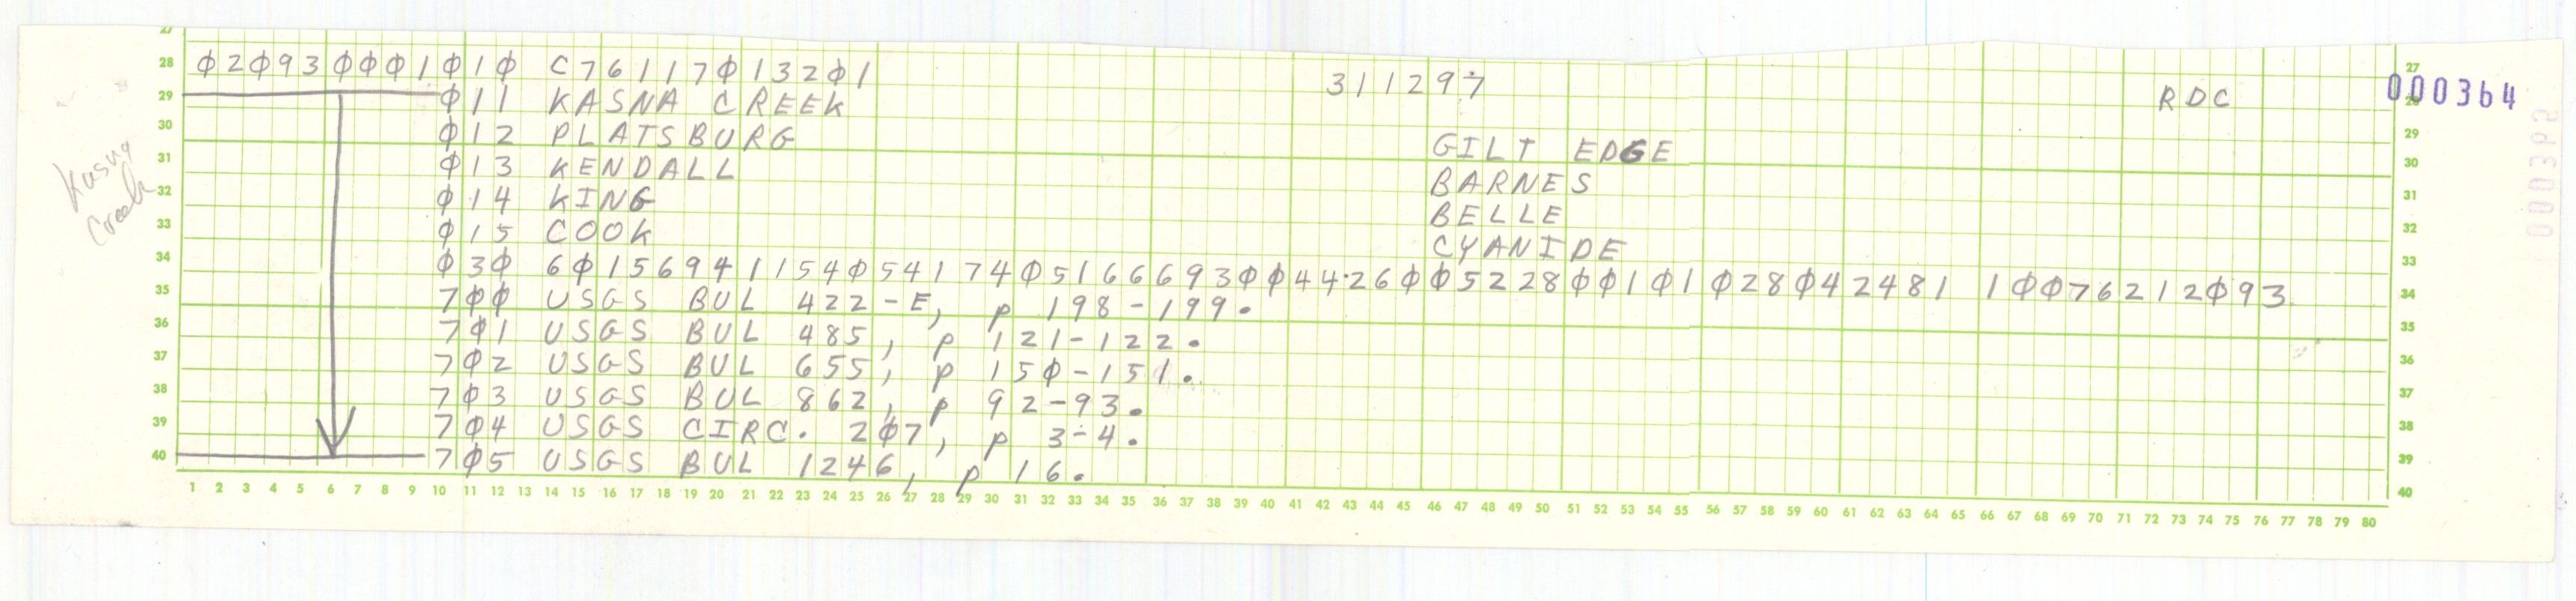 27
28 Ø2Ø93ØØØ1Ø1Ø C76117Ø132Ø1 311297 RDC 27
000364
29 Ø11 KASNA CREEK 28
30 Ø12 PLATSBURG GILT EDGE 29
31 Ø13 KENDALL BARNES 30
32 Ø14 KING BELLE 31
33 Ø15 COOK CYANIDE 32
34 Ø3Ø 6Ø156941154Ø54174Ø5166693ØØ4426ØØ5228ØØ1Ø1Ø28Ø42481 1ØØ76212Ø93 33
35 7ØØ USGS BUL 422-E, p 198-199. 34
36 7Ø1 USGS BUL 485, p 121-122. 35
37 7Ø2 USGS BUL 655, p 15Ø-151. 36
38 7Ø3 USGS BUL 862, p 92-93. 37
39 7Ø4 USGS CIRC. 2Ø7, p 3-4. 38
40 7Ø5 USGS BUL 1246, p 16. 39
40
1 2 3 4 5 6 7 8 9 10 11 12 13 14 15 16 17 18 19 20 21 22 23 24 25 26 27 28 29 30 31 32 33 34 35 36 37 38 39 40 41 42 43 44 45 46 47 48 49 50 51 52 53 54 55 56 57 58 59 60 61 62 63 64 65 66 67 68 69 70 71 72 73 74 75 76 77 78 79 80
Kasna
Creek
000365